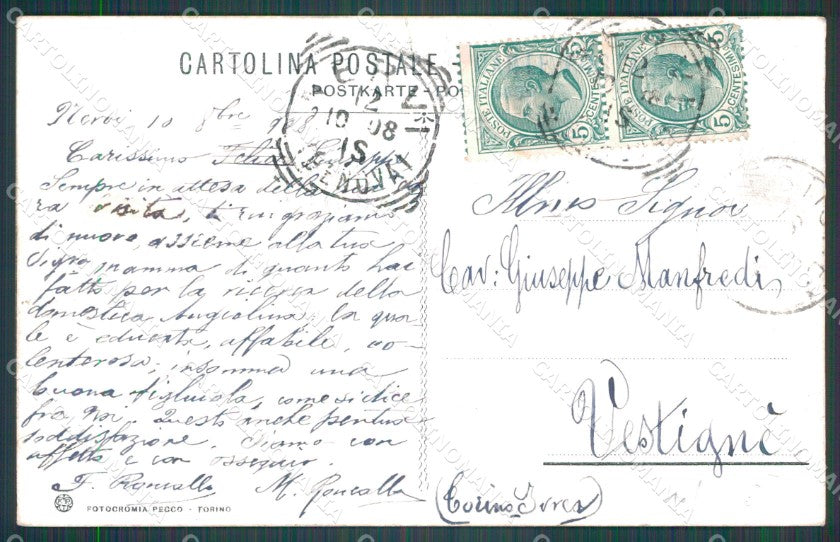 CARTOLINA POSTALE
POSTKARTE - PO
NERVI
12
10 08
1S
(GENOVA)
POSTE ITALIANE
5 CENTESIMI 5
POSTE ITALIANE
5 CENTESIMI 5
Nervi 10 8bre 908
Carissimo
Sempre in attesa della
ra visita, ti ringraziamo
di nuovo, assieme alla tua
Sigra mamma di quanto hai
fatto per la ricerca della
domestica Angiolina, la qua
le è educata, affabile, vo-
lenterosa; insomma una
buona figliuola, come si dice
fra noi. Questo anche per tua
soddisfazione. Siamo con
affetto e con ossequio.
F. Roncallo M. Roncallo
Illmo Signor
Cav: Giuseppe Manfredi
Vestignè
(Torino Ivrea)
FOTOCROMIA PECCO - TORINO
CARTOLINOMANIA